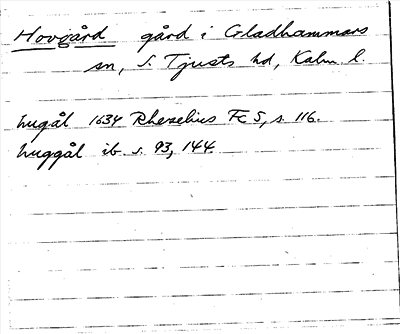 Hovgård gård i Gladhammars
sn, S. Tjusts hd, Kalm. l.
hugål 1634 Rhezelius Fc 5, s. 116.
huggål ib s. 93, 144.